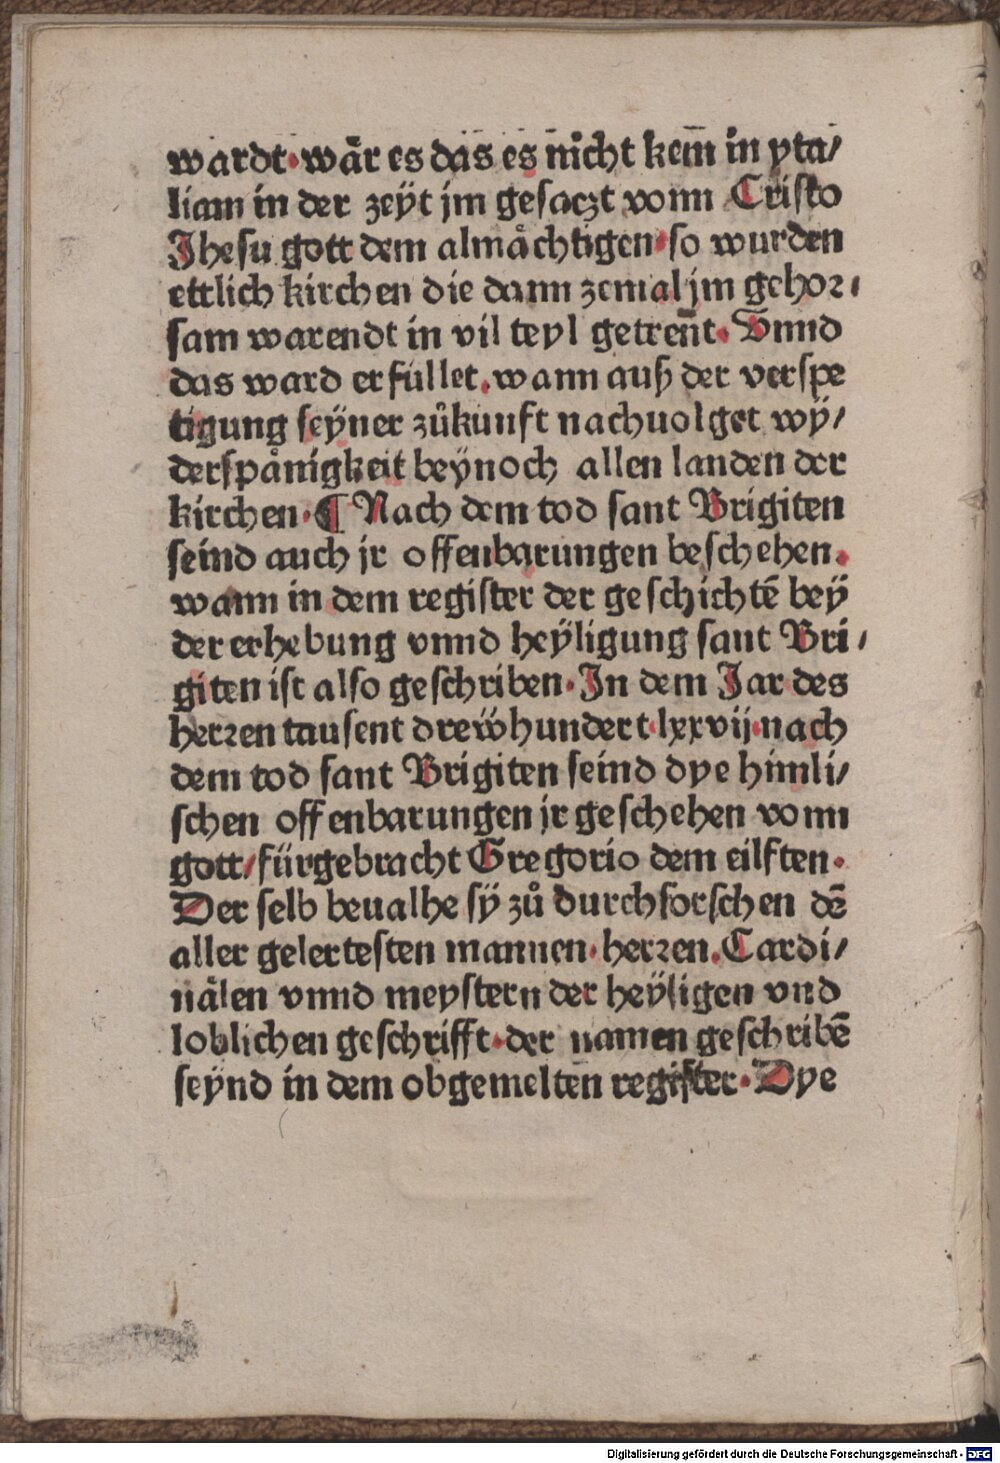 wardt·wår es das es nicht kem̅ in yta/
liam in der zeÿt jm gesaczt vonn Cristo
Jhesu gott dem almåchtigen·so wurden
ettlich kirchen die dann zemal jm gehoꝛ/
sam warendt in vil teyl getren̅t·Vnnd
das ward erfüllet·wann auß der verspe
tigung seÿner zůkunft nachuolget wÿ/
derspånigkeit beÿnoch allen landen der
kirchen·¶ Nach dem tod sant Brigiten
seind auch jr offenbarungen beschehen·
wann in dem register der geschichtē beÿ
der erhebung vnnd heÿligung sant Bri/
giten ist also geschriben·In dem Jar des
herꝛen tausent dreẅhundert·lxxvij·nach
dem tod sant Brigiten seind dye himli/
schen offenbarungen jr geschehen vonn
gott/fürgebracht Gregorio dem eilften·
Der selb beualhe sÿ zů durchforschen dē
aller gelertesten mannen·herꝛen·Cardi/
nålen vnnd meystern der heÿligen vnd
loblichen geschrifft·der namen geschribē
seÿnd in dem obgemelten register·Dye
Digitalisierung gefördert durch die Deutsche Forschungsgemeinschaft - DFG